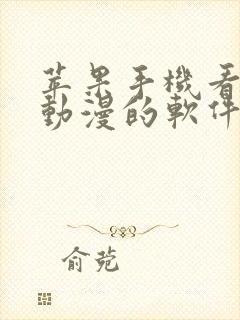 苹果手機看
動漫的軟件
俞菀